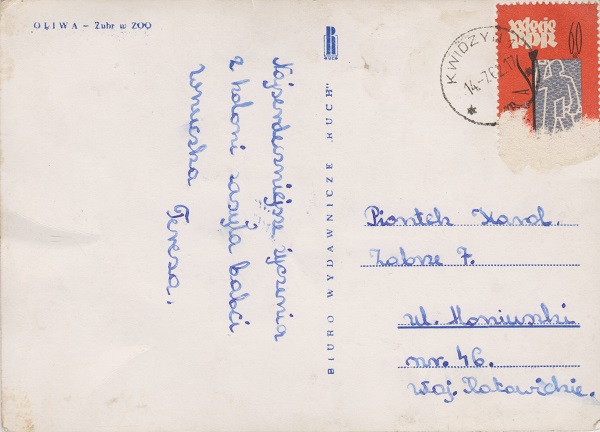 OLIWA – Żubr w ZOO
RUCH
KWIDZYN
60
Najserdeczniejsze życzenia
z koloni zasyła babci
wnuczka
Teresa.
BIURO WYDAWNICZE „RUCH”
Piontek Karol.
Zabrze 7.
ul. Moniuszki
nr. 46.
woj. Katowickie.